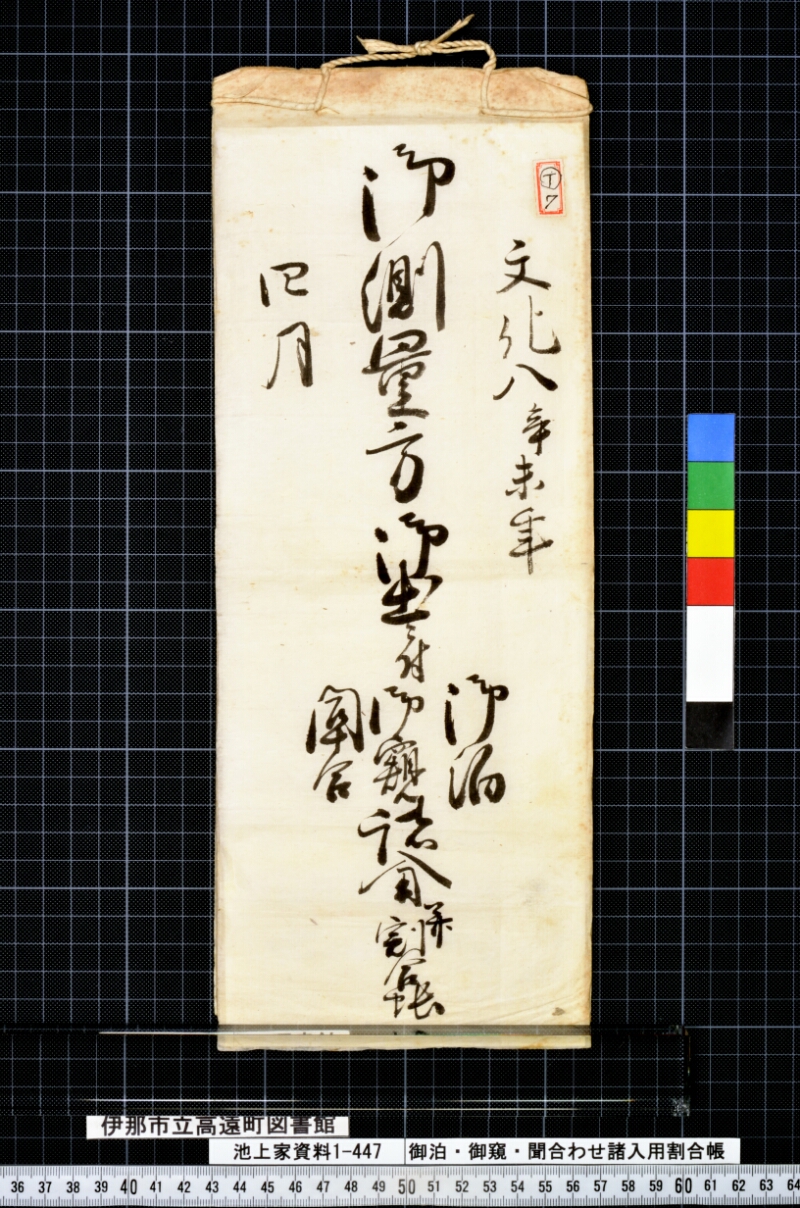 文化八辛未年
御測量方御出ニ付
御泊
御窺
聞合
諸入用
并
割合帳
四月
伊那市立高遠町図書館
池上家資料1-447
御泊・御窺・聞合わせ諸入用割合帳
36 37 38 39 40 41 42 43 44 45 46 47 48 49 50 51 52 53 54 55 56 57 58 59 60 61 62 63 64